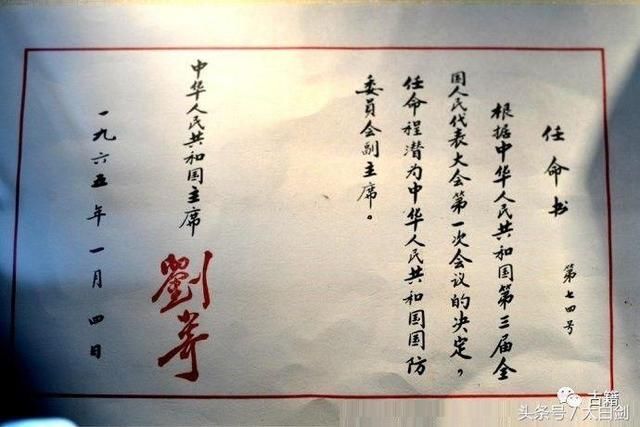 任命书
第七四号
根据中华人民共和国第三届全
国人民代表大会第一次会议的决定，
任命程潜为中华人民共和国国防
委员会副主席。
中华人民共和国主席
劉少奇
一九六五年一月四日
古籍
头条号/太白剑